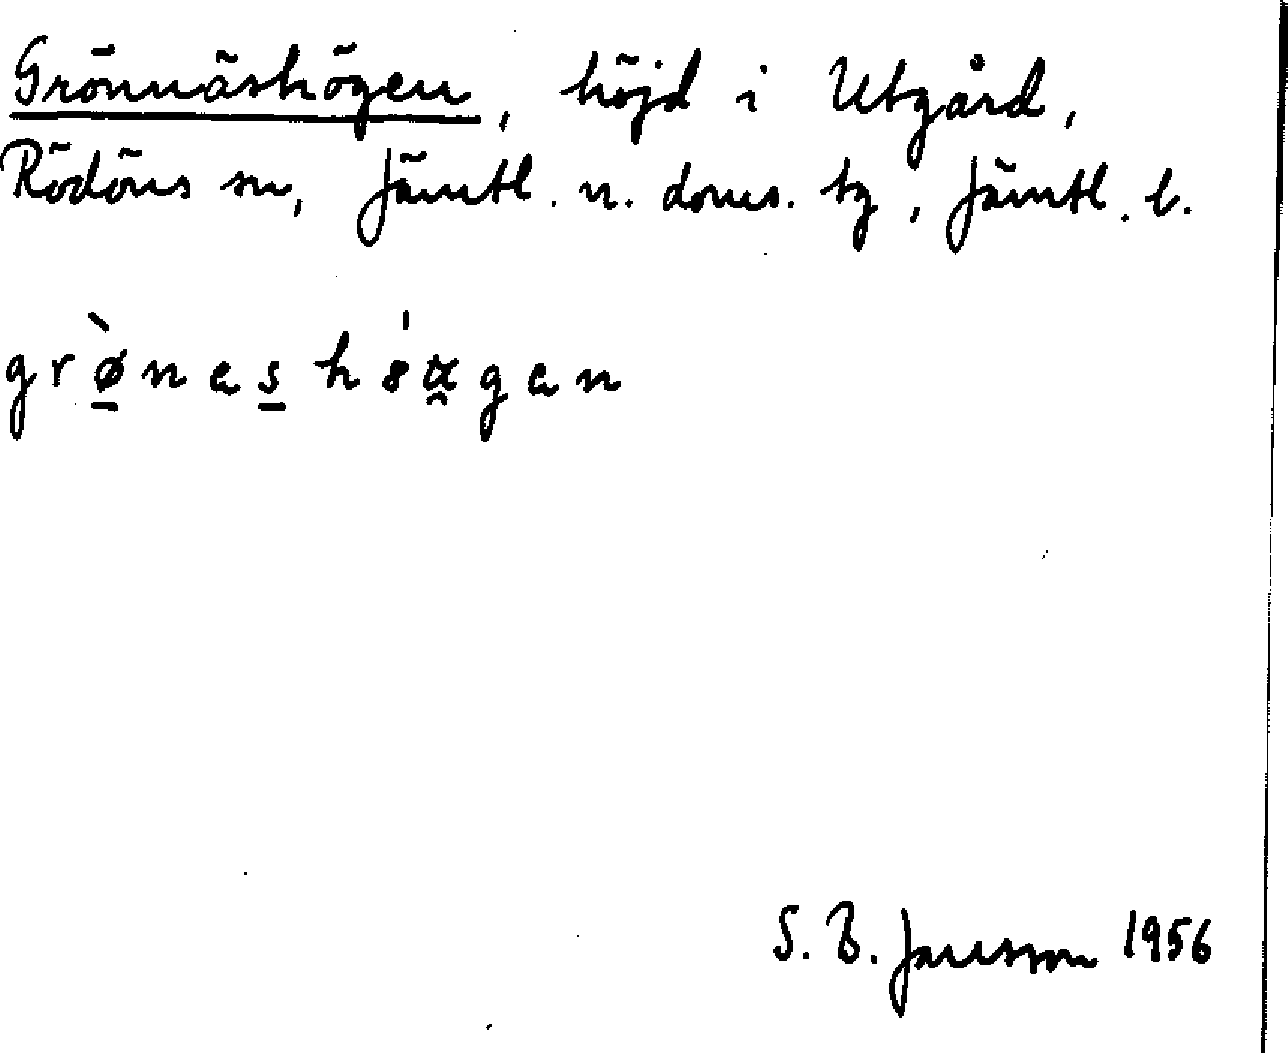 Grönnäshögen, höjd i Utgård,
Rödöns sn, Jämtl. n. doms. tg, Jämtl. l.
grø̱̀nes̱ hȣ́ægen
S. B. Jansson 1956